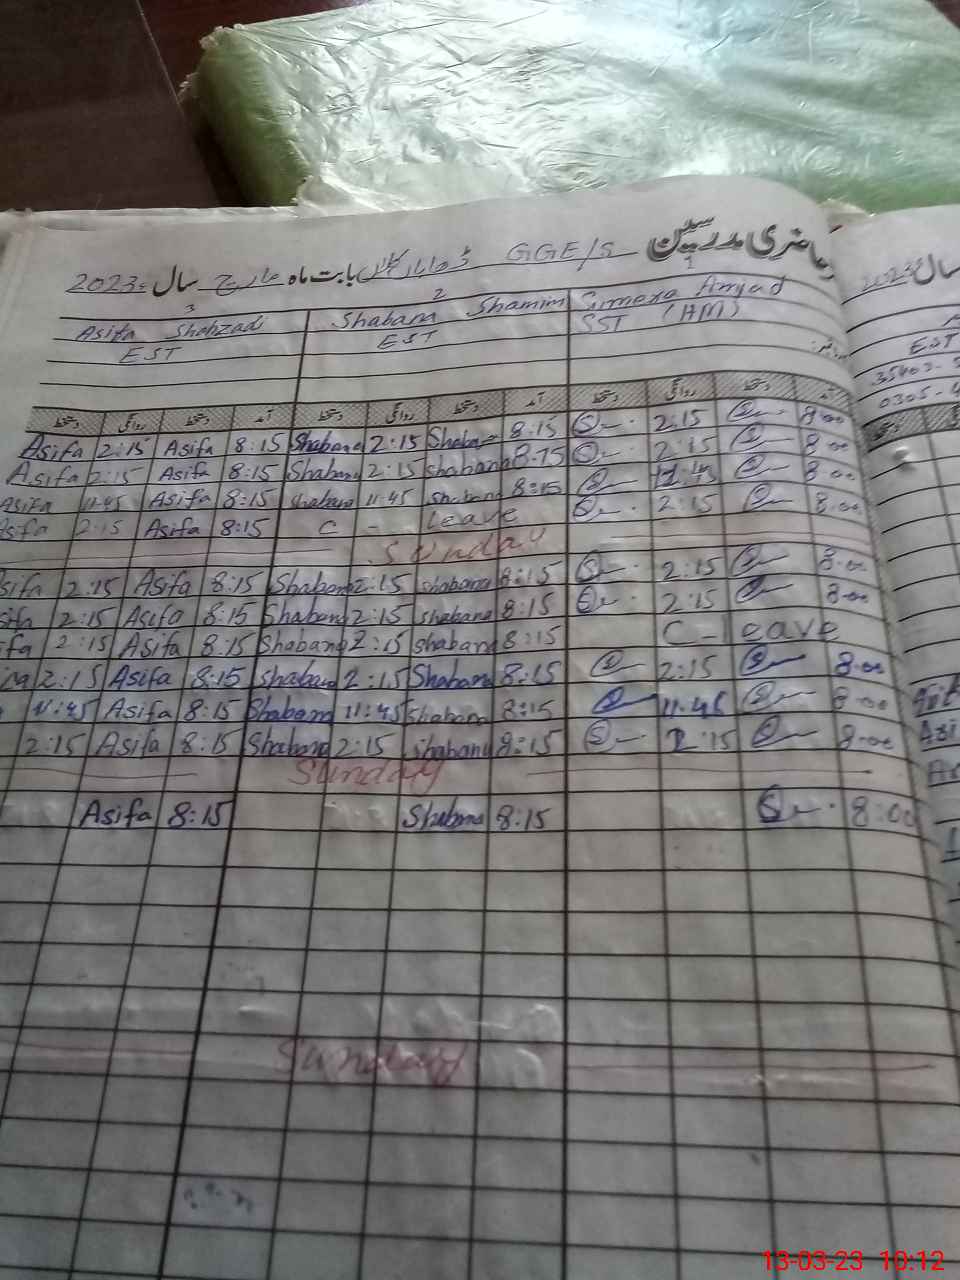 حاضری مدرسین GGE/S بابت ماہ مارچ سال 2023ء
سال
3 2 1
Asifa Shahzad Shabana Shamim Sumera Amjad
EST EST SST (HM)
EST
35402-
0305-4
دستخط روانگی دستخط آمد دستخط روانگی دستخط آمد دستخط روانگی دستخط آمد
Asifa 2:15 Asifa 8:15 Shabana 2:15 Shaba 8:15 2:15 8:00
Asifa 2:15 Asifa 8:15 Shabana 2:15 Shabana 8:15 2:15 8:00
Asifa 11:45 Asifa 8:15 Shabana 11:45 Shabana 8:15 8:00
Asifa 2:15 Asifa 8:15 C - leave 2:15 8:00
Sunday
Asifa 2:15 Asifa 8:15 Shabana 2:15 Shabana 8:15 2:15 8:00
sifa 2:15 Asifa 8:15 Shabana 2:15 Shabana 8:15 2:15 8:00
fa 2:15 Asifa 8:15 Shabana 2:15 Shabana 8:15 C-leave
2:15 Asifa 8:15 Shabana 2:15 Shabana 8:15 2:15 8:00
11:45 Asifa 8:15 Shabana 11:45 Shabana 8:15 11:45 8:00
2:15 Asifa 8:15 Shabana 2:15 Shabana 8:15 2:15 8:00
Sunday
Asifa 8:15 Shabana 8:15 8:00
Sunday
13-03-23 10:12